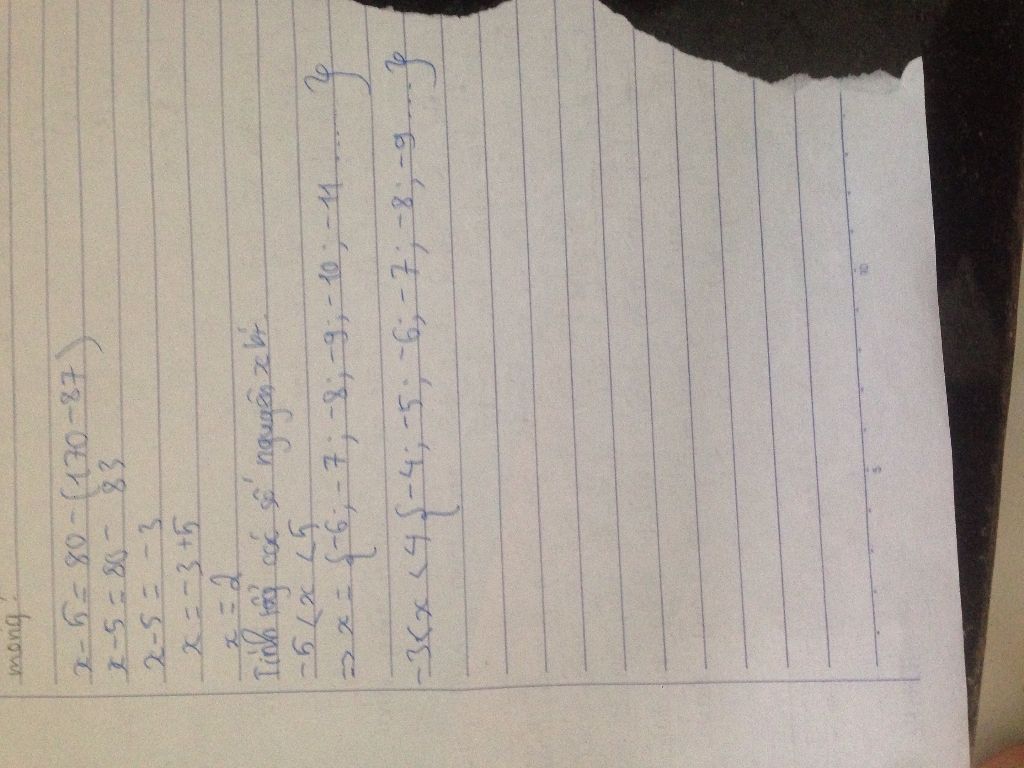 mong:
x - 5 = 80 - (170 - 87)
x - 5 = 80 - 83
x - 5 = -3
x = -3 + 5
x = 2
Tính tổng các số nguyên x bt:
-5 < x < 5
=> x = {-6; -7; -8; -9; -10; -11 ..... }
-3 < x < 4 {-4; -5; -6; -7; -8; -9 .... }
5
10